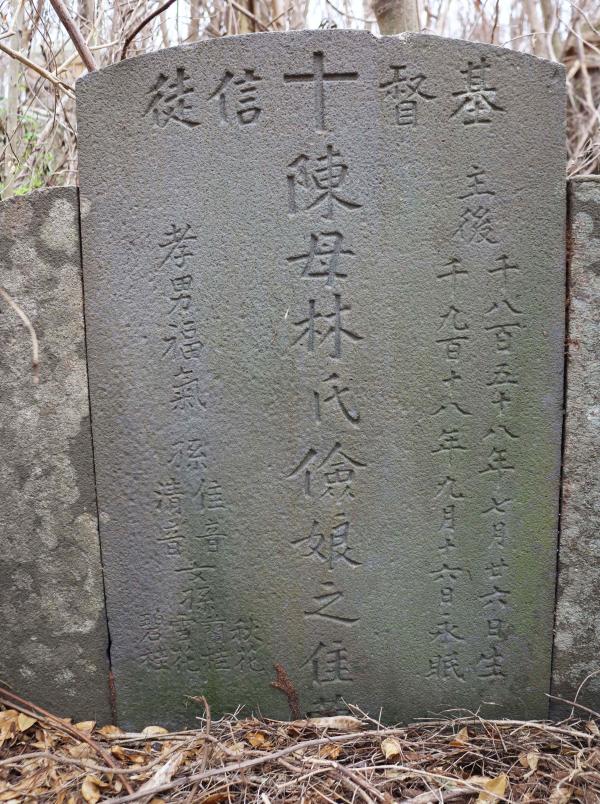 基督十信徒
主後
千八百五十八年七月廿六日生
千九百十八年九月十六日永眠
陳母林氏儉娘之佳
孝男福氣
孫
佳音
清音
女孫
秋花
雪花
碧桂